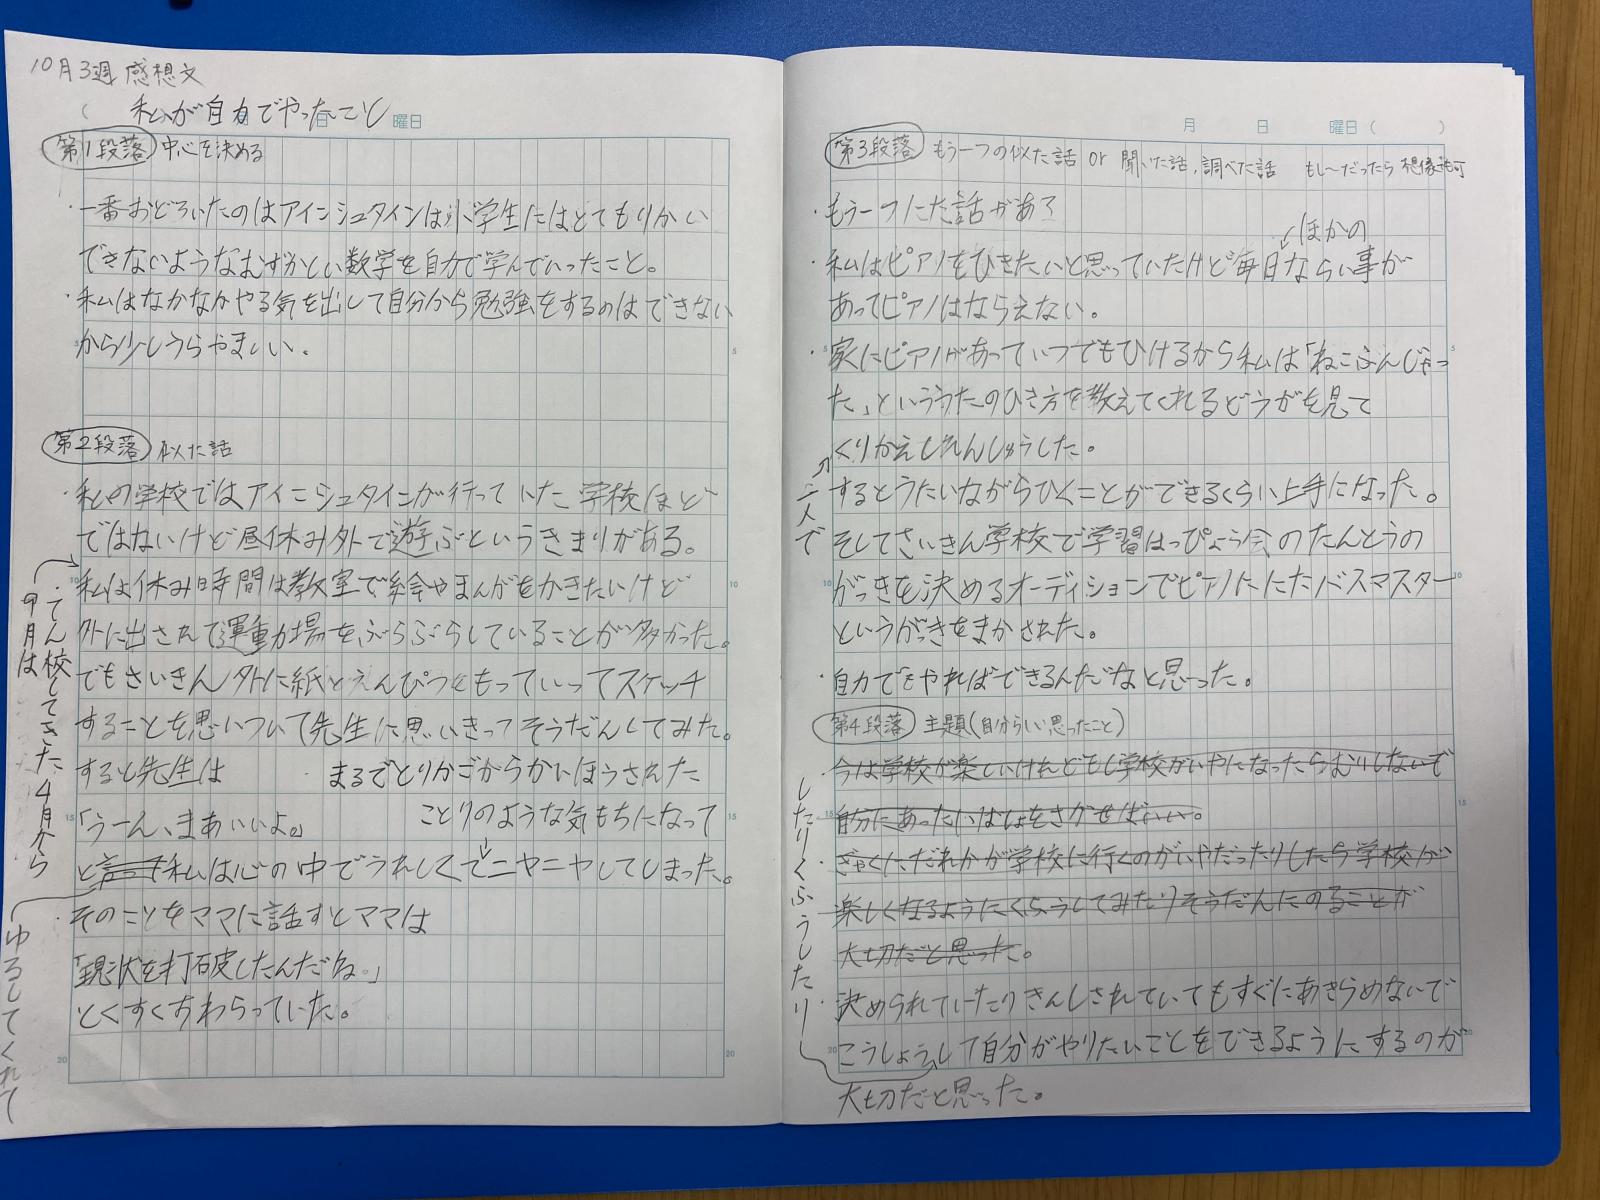 10月3週 感想文
私が自力でやったこと
日 曜日
第1段落 中心を決める
・一番おどろいたのはアインシュタインは小学生にはとてもりかい
できないようなむずかしい数学を自力で学んでいったこと。
・私はなかなかやる気を出して自分から勉強をするのはできない
から少しうらやましい。
5
5
第2段落 似た話
・私の学校ではアインシュタインが行っていた学校ほど
ではないけど昼休み外で遊ぶというきまりがある。
10
10
私は休み時間は教室で絵やまんがをかきたいけど
外に出されて運動場をぶらぶらしていることが多かった。
でもさいきん外に紙とえんぴつをもっていってスケッチ
することを思いついて先生に思いきってそうだんしてみた。
すると先生は
まるでとりかごからかいほうされた
15
15
「うーん、まあいいよ。」
ことりのような気もちになって
と言って私は心の中でうれしくてニヤニヤしてしまった。
・そのことをママに話すとママは
「現状を打破したんだね。」
とくすくすわらっていた。
20
20
・てん校してきた4月から
9月は
ゆるしてくれて
月 日 曜日( )
第3段落 もう一つの似た話 or 聞いた話,調べた話 もし〜だったら 想像でも可
・もう一つにた話がある
ほかの
・私はピアノをひきたいと思っていたけど毎日ならい事が
あってピアノはならえない。
5
5
・家にピアノがあっていつでもひけるから私は「ねこふんじゃっ
た」といううたのひき方を教えてくれるどうがを見て
くりかえしれんしゅうした。
二人で
するとうたいながらひくことができるくらい上手になった。
そしてさいきん学校で学習はっぴょう会のたんとうの
10
10
がっきを決めるオーディションでピアノににたバスマスター
というがっきをまかされた。
・自力でもやればできるんだなと思った。
第4段落 主題(自分らしい思ったこと)
・今は学校が楽しいけれどもし学校がいやになったらむりしないで
15
15
自分にあったいばしょをさがせばいい。
・ぎゃくにだれかが学校に行くのがいやだったりしたら学校が
楽しくなるようにくふうしてみたりそうだんにのることが
大切だと思った。
・決められていたりきんしされていてもすぐにあきらめないで
20
20
こうしょうして自分がやりたいことをできるようにするのが
大切だと思った。
したりくふうしたり